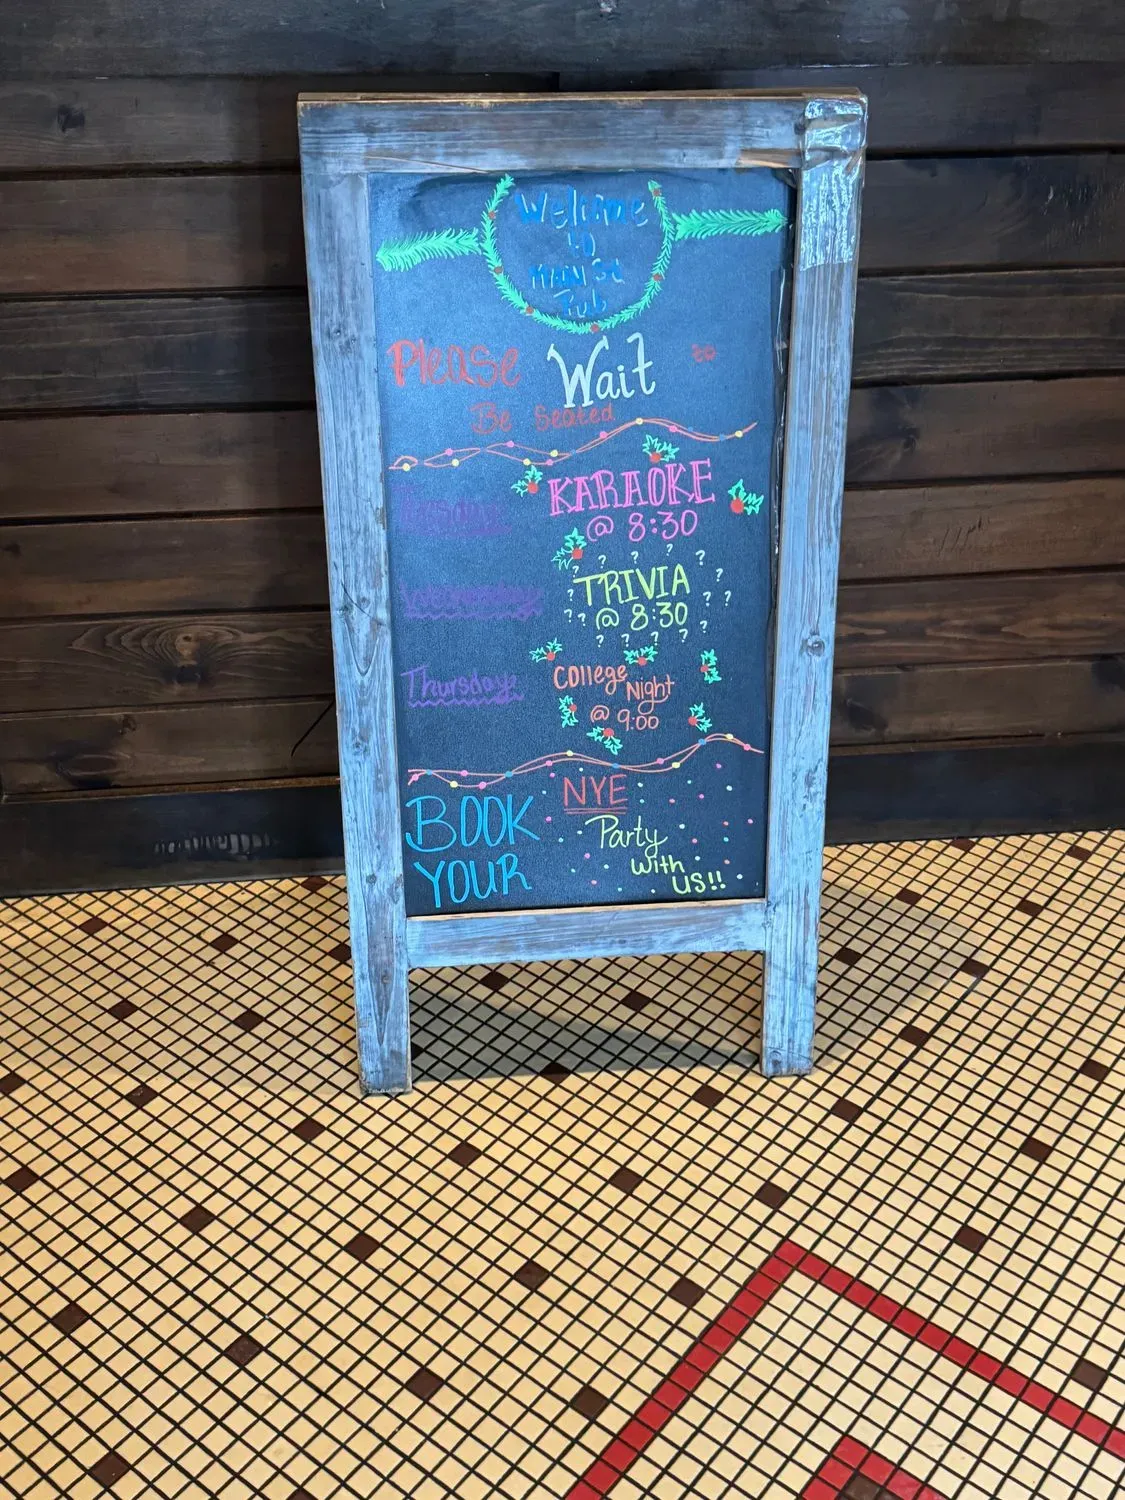 Welcome
to
Main St
Pub
Please Wait to
Be Seated
Tuesday KARAOKE
@ 8:30
Wednesday TRIVIA
@ 8:30
Thursday College
Night
@ 9:00
BOOK
YOUR
NYE
Party
with
us!!